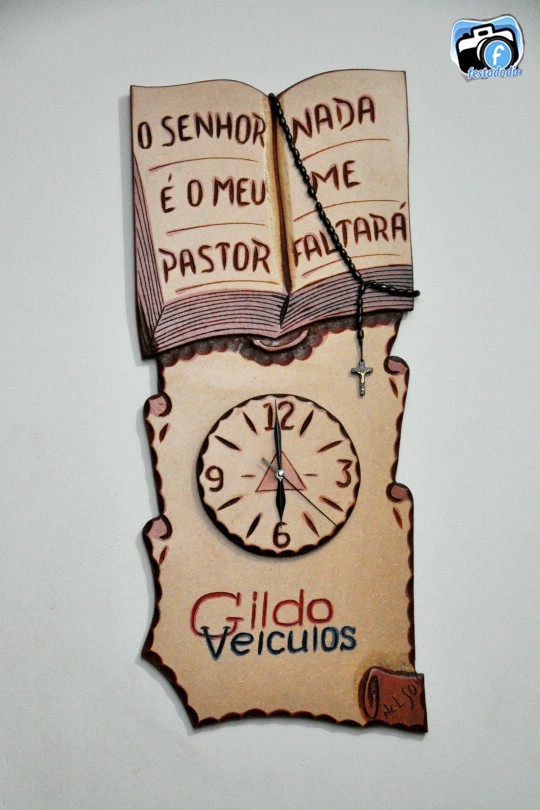 festadodia
O SENHOR
É O MEU
PASTOR
NADA
ME
FALTARÁ
12
9
3
6
Gildo
Veiculos
NELSO